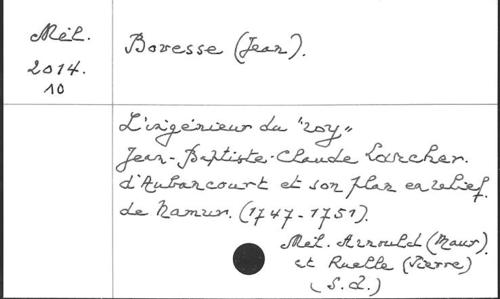 Mél.
2014.
10
Bovesse (Jean).
L'ingénieur du "roy"
Jean-Baptiste-Claude Larcher.
d'Aubancourt et son plan en relief.
de Namur. (1747-1751).
Mél. Arnould (Maur).
et Ruelle (Pierre)
(S.d.)